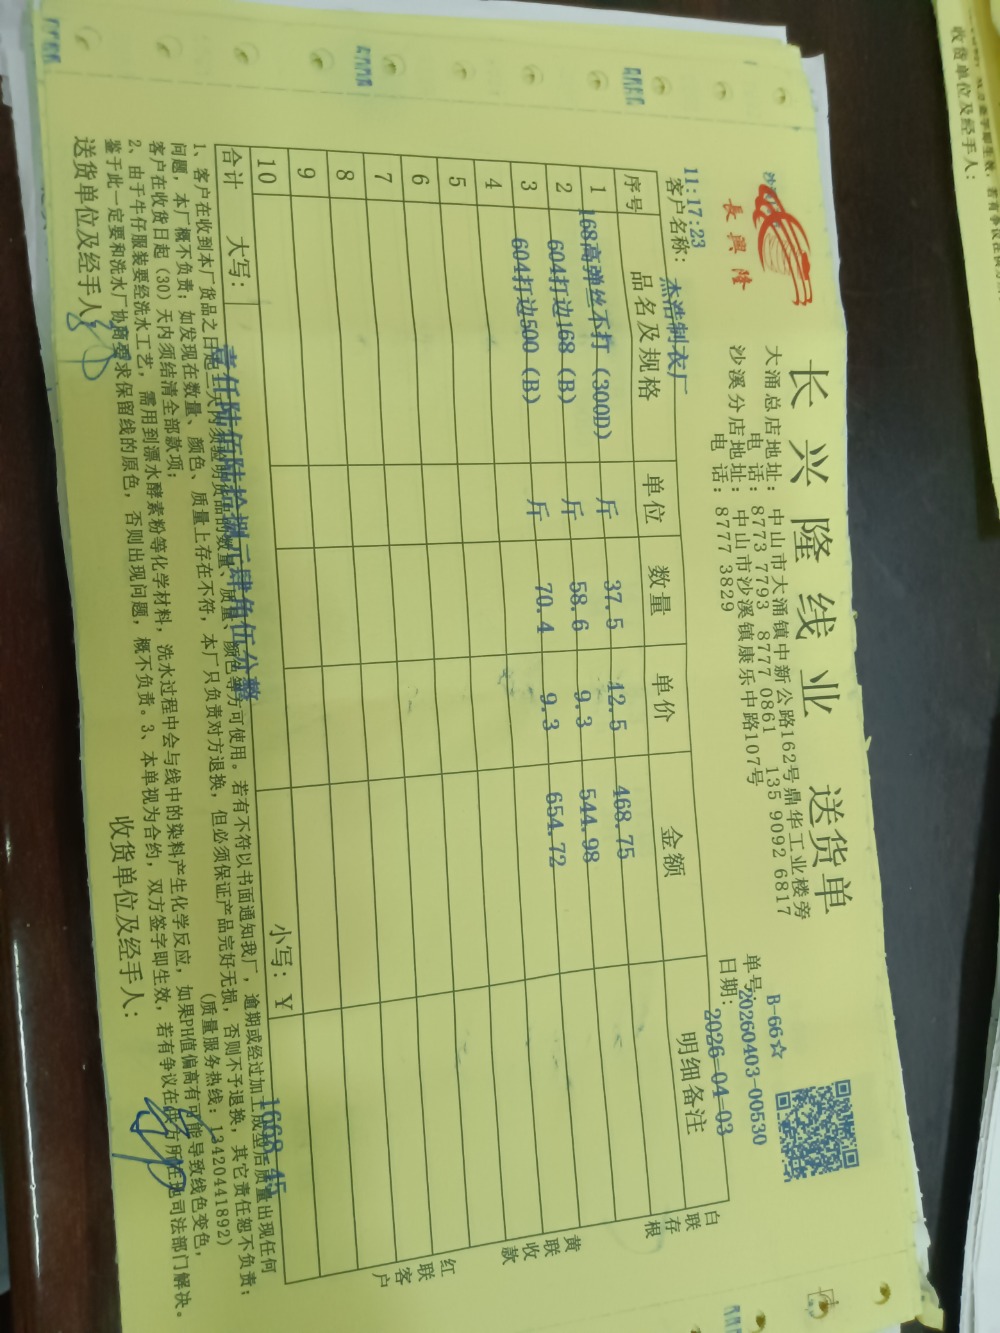 長興隆
长兴隆线业 送货单
大涌总店地址：中山市大涌镇中新公路162号鼎华工业楼旁
电 话：8773 7793 8777 0861 135 9092 6817
沙溪分店地址：中山市沙溪镇康乐中路107号
电 话：8777 3829
B-66☆
单号：20260403-00530
日期：2026-04-03
11:17:23
客户名称：杰浩制衣厂
序号 品名及规格 单位 数量 单价 金额 明细备注
1 168高弹丝不打（300D） 斤 37.5 12.5 468.75
2 604打边168（B） 斤 58.6 9.3 544.98
3 604打边500（B） 斤 70.4 9.3 654.72
4
5
6
7
8
9
10
合计 大写：壹仟陆佰陆拾捌元肆角伍分整 小写：¥ 1668.45
白联存根
黄联收款
红联客户
1、客户在收到本厂货品之日起三天内须验明货品的数量、质量、颜色等方可使用。若有不符以书面通知我厂，逾期或经过加工成型后质量出现任何
问题，本厂概不负责；如发现在数量、颜色、质量上存在不符，本厂只负责对方退换，但必须保证产品完好无损，否则不予退换，其它责任恕不负责；
客户在收货日起（30）天内须结清全部款项； （质量服务热线：13420441892）
2、由于牛仔服装要经洗水工艺，需用到漂水酵素粉等化学材料，洗水过程中会与线中的染料产生化学反应，如果PH值偏高有可能导致线色变色，
鉴于此一定要和洗水厂协商要求保留线的原色，否则出现问题，概不负责。3、本单视为合约，双方签字即生效，若有争议在供方所在地司法部门解决。
送货单位及经手人： 收货单位及经手人：
收货单位及经手人：